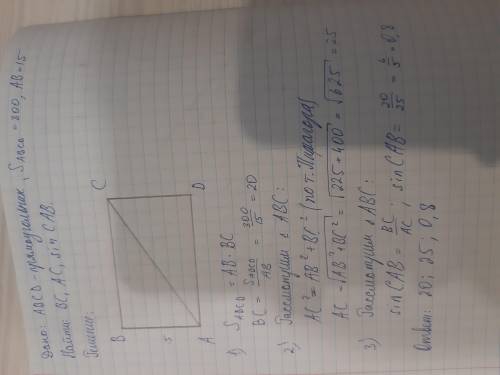 Дано: ABCD - прямоугольник, S ABCD = 300, AB = 15
Найти: BC, AC, sin CAB.
Решение:
B C
S
A D
1) S ABCD = AB · BC
BC = S ABCD / AB = 300/15 = 20
2) Рассмотрим △ ABC:
AC² = AB² + BC² (по т. Пифагора)
AC = √AB² + BC² = √225 + 400 = √625 = 25
3) Рассмотрим △ ABC:
sin CAB = BC/AC; sin CAB = 20/25 = 4/5 = 0,8
Ответ: 20; 25; 0,8